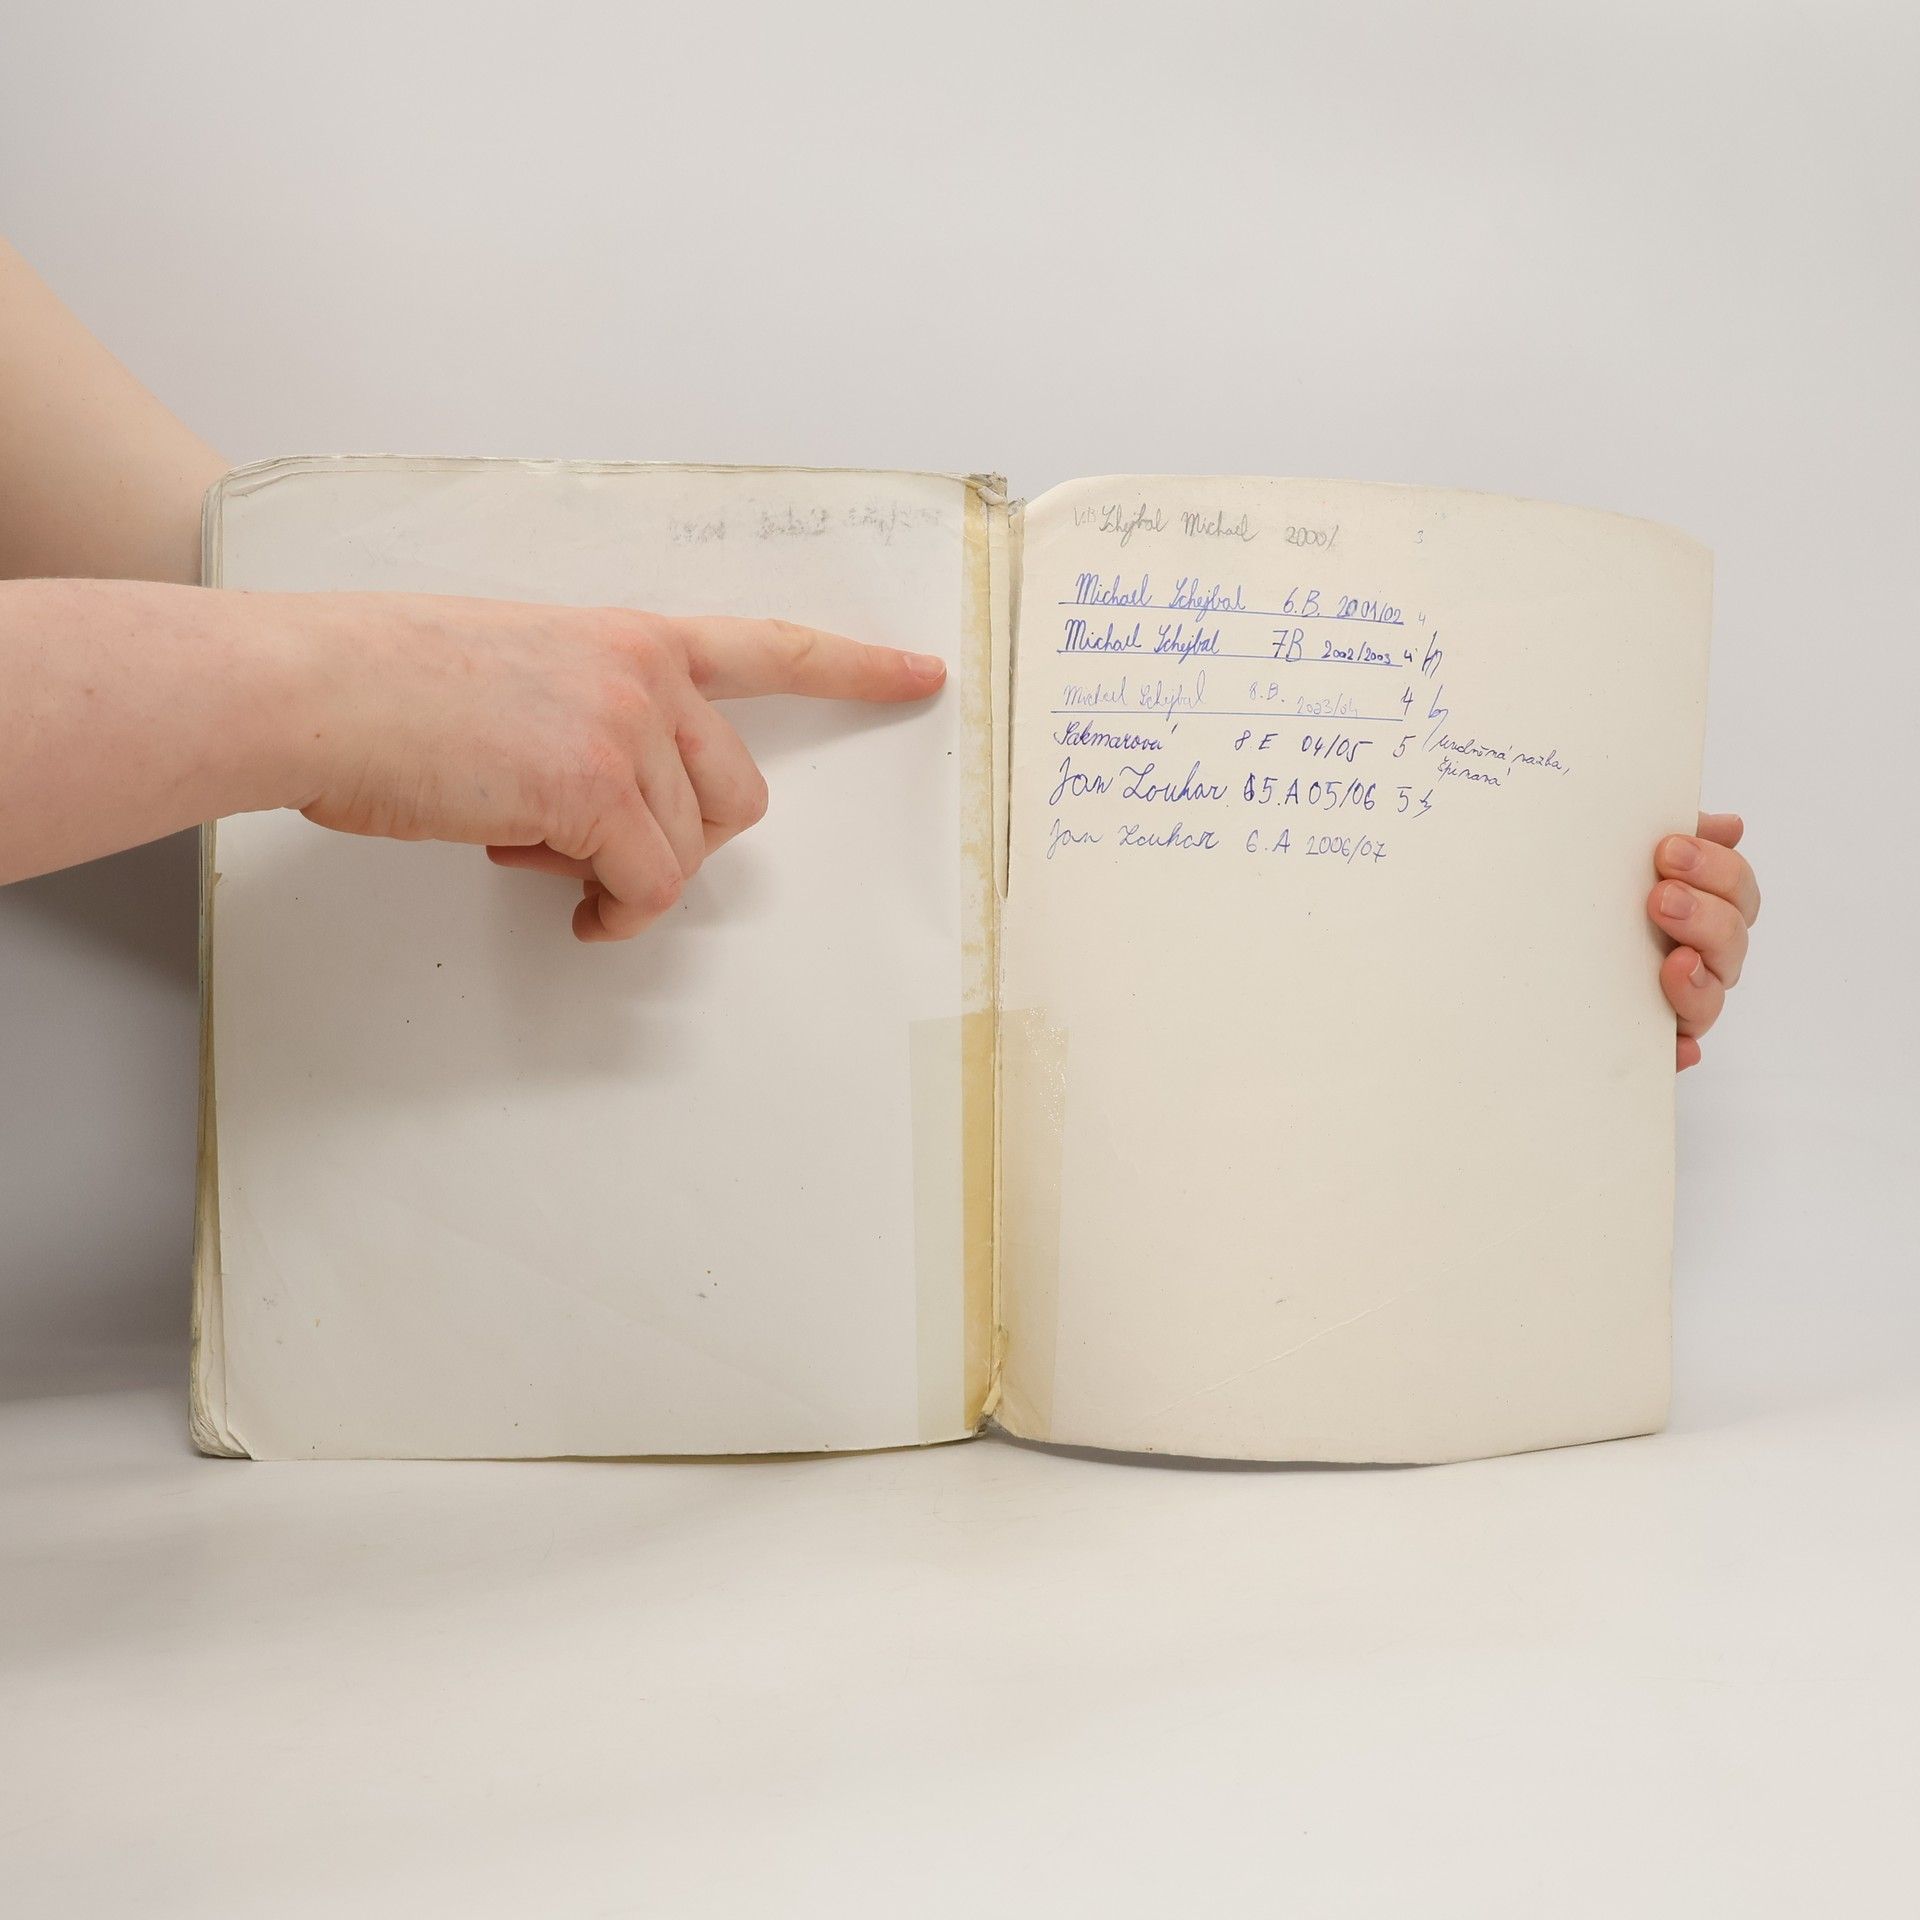 V.B Schejbal Michael 2000/ 3
Michael Schejbal 6.B. 2001/02 4
Michael Schejbal 7B 2002/2003 4
Michael Schejbal 8.B. 2003/04 4
Sakmarová 8.E 04/05 5 vazba,
špinavá
Jan Louhar 5.A 05/06 5
Jan Louhar 6.A 2006/07